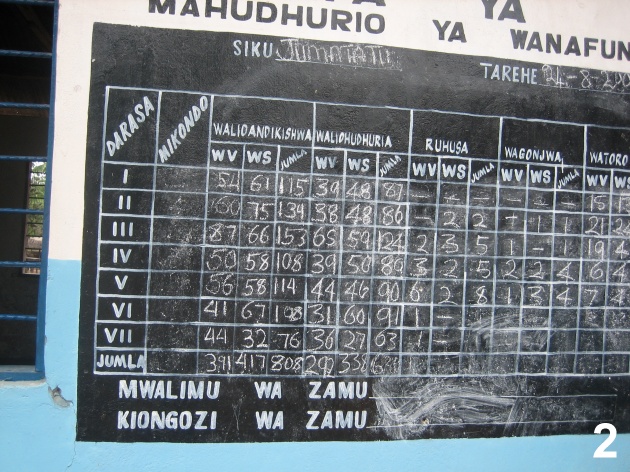 YA
MAHUDHURIO YA WANAFUN
SIKU JUMATATU
TAREHE 24-8-200
DARASA MIKONDO WALIOANDIKISHWA WALIOHUDHURIA RUHUSA WAGONJWA WATORO
WV WS JUMLA WV WS JUMLA WV WS JUMLA WV WS JUMLA WV WS
I 54 61 115 39 48 87 - - - - - - 15
II 60 75 134 38 48 86 - 2 2 - 1 1 21
III 87 66 153 65 59 124 2 3 5 1 - 1 19
IV 50 58 108 39 50 89 3 2 5 2 2 4 6
V 56 58 114 44 46 90 6 2 8 1 3 4 7
VI 41 67 108 31 60 91 1 - 1
VII 44 32 76 36 27 63 1 -
JUMLA 391 417 808 292 338
MWALIMU WA ZAMU
KIONGOZI WA ZAMU
2